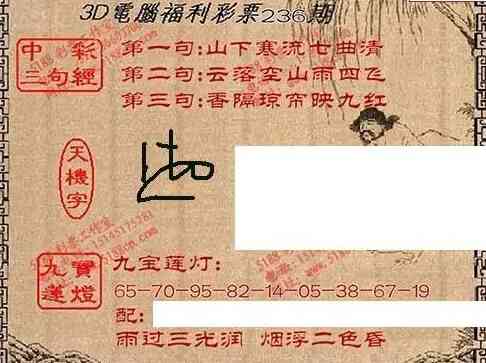 3D電腦福利彩票236期
中彩
三句經
第一句:山下寒流七曲清
第二句:云落空山雨四飞
第三句:香隔琼帘映九红
天機字
九寶
蓮燈
九宝莲灯:
65-70-95-82-14-05-38-67-19
配:
雨过三光润 烟浮二色昏